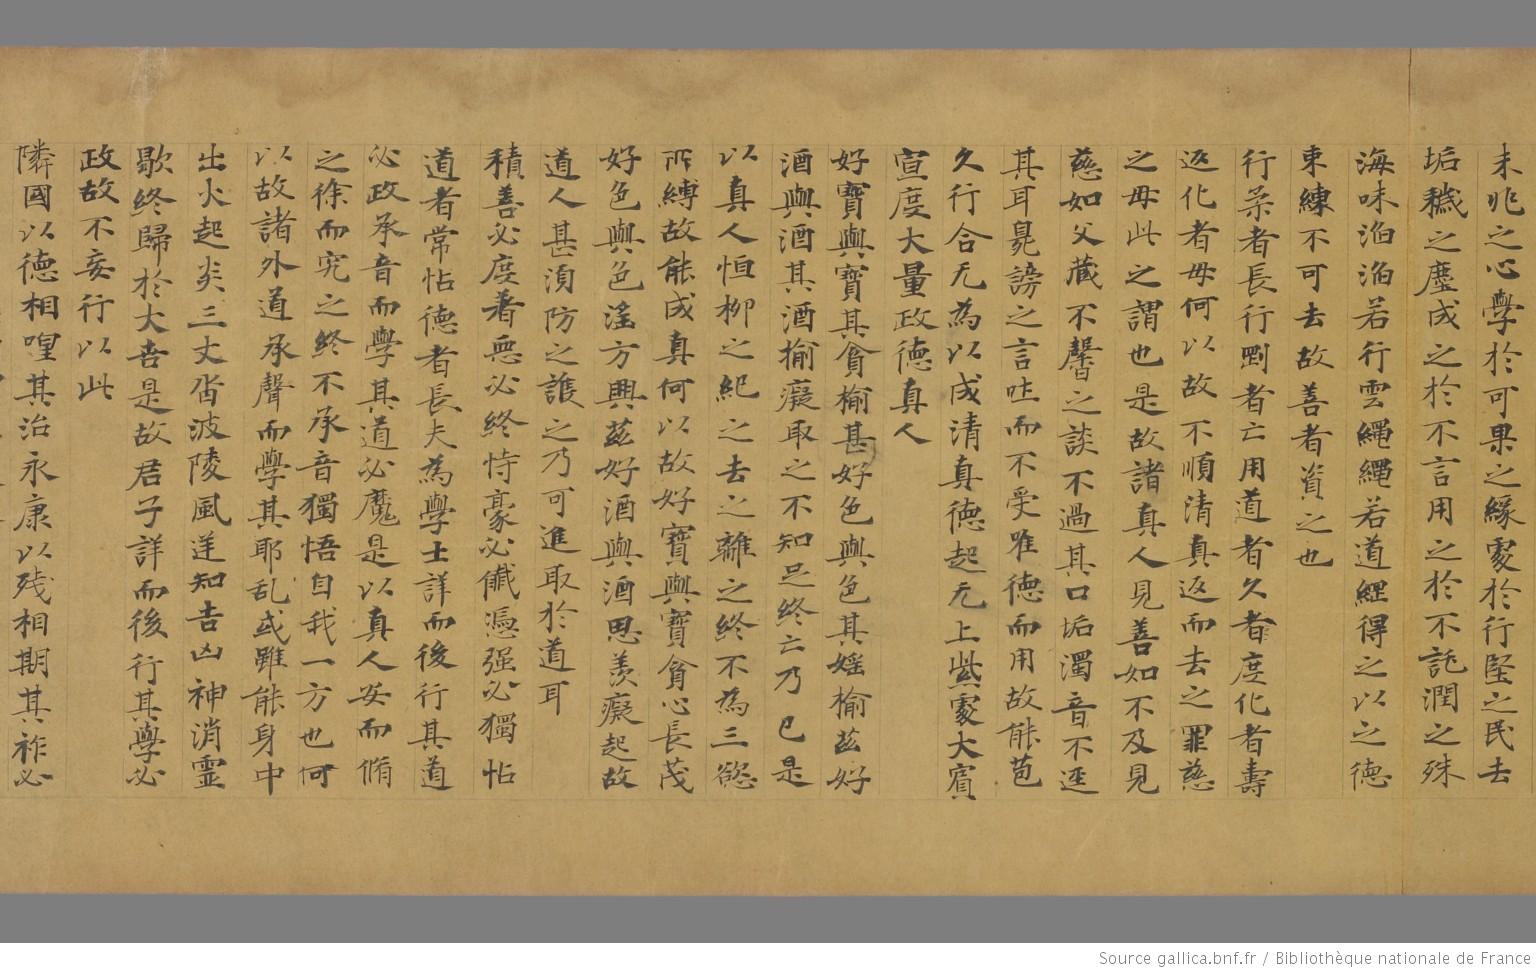 未兆之心學於可果之緣處於行堅之民去
垢穢之塵成之於不言用之於不託潤之殊
海味滔滔若行雲繩繩若道經得之以之德
東練不可去故善者資之也
行柔者長行剛者亡用道者久者度化者壽
返化者毋何以故不順清真返而去之罪慈
之毋此之謂也是故諸真人見善如不及見
慈如父蔵不馨之談不過其口垢濁音不逕
其耳毀謗之言吐而不受唯德而用故能苞
久行合元為以成清真德起元上紫處大賓
宣度大量政德真人
好寶與寶其貪揄甚好色與色其婬揄茲好
酒與酒其酒揄癡取之不知足終亡乃已是
以真人恒柳之紀之去之離之終不為三慾
所縛故能成真何以故好寶與寶貪心長茂
好色與色滛方興茲好酒與酒思羨癡起故
道人甚湏防之護之乃可進取於道耳
積善必度著惡必終恃豪必儎憑强必獨怗
道者常怗德者長夫為學士詳而後行其道
必政承音而學其道必魔是以真人安而脩
之徐而究之終不承音獨悟自我一方也何
以故諸外道承聲而學其耶乱或雖能身中
出火起炎三丈㳫波陵風逆知吉凶神消霊
歇終歸於大𠫤是故君子詳而後行其學必
政故不妄行以此
隣國以德相喤其治永康以残相期其祚必